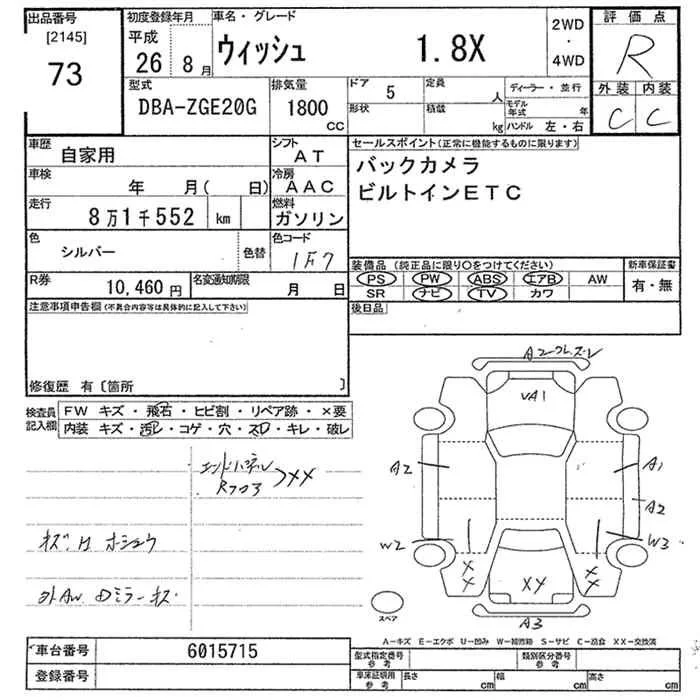 出品番号
[2145]
73
初度登録年月
平成
26 8月
車名・グレード
ウィッシュ 1.8X
2WD
・
4WD
評価点
R
外装 内装
C C
型式
DBA-ZGE20G
排気量
1800
CC
ドア 5
形状
定員 人
積載 kg
ディーラー・並行
モデル年式 年
ハンドル 左・右
車歴
自家用
シフト
AT
車検
年 月( 日)
冷房
AAC
走行
8万1千552 km
燃料
ガソリン
色
シルバー
色替
色コード
1F7
R券
10,460円
名変通知期限
月 日
セールスポイント(正常に機能するものに限ります)
バックカメラ
ビルトインETC
装備品(純正品に限り○をつけてください)
PS PW ABS エアB AW
SR ナビ TV カワ
新車保証書
有・無
後日品
注意事項申告欄(不具合内容等は具体的に記入して下さい)
修復歴 有〔箇所 〕
検査員
記入欄
FW キズ・飛石・ヒビ割・リペア跡・×要
内装 キズ・汚レ・コゲ・穴・スレ・キレ・破レ
エンドパネル
Rフロア
XX
A2
VA1
A2
A1
A2
W2
W3
XX
XX
XY
A3
スペア
A-キズ E-エクボ U-凹み W-補修跡 S-サビ C-腐食 XX-交換済
車台番号 6015715
登録番号
型式指定番号
参考
類別区分番号
参考
車庫証明用
参考
長さ cm
幅 cm
高さ cm